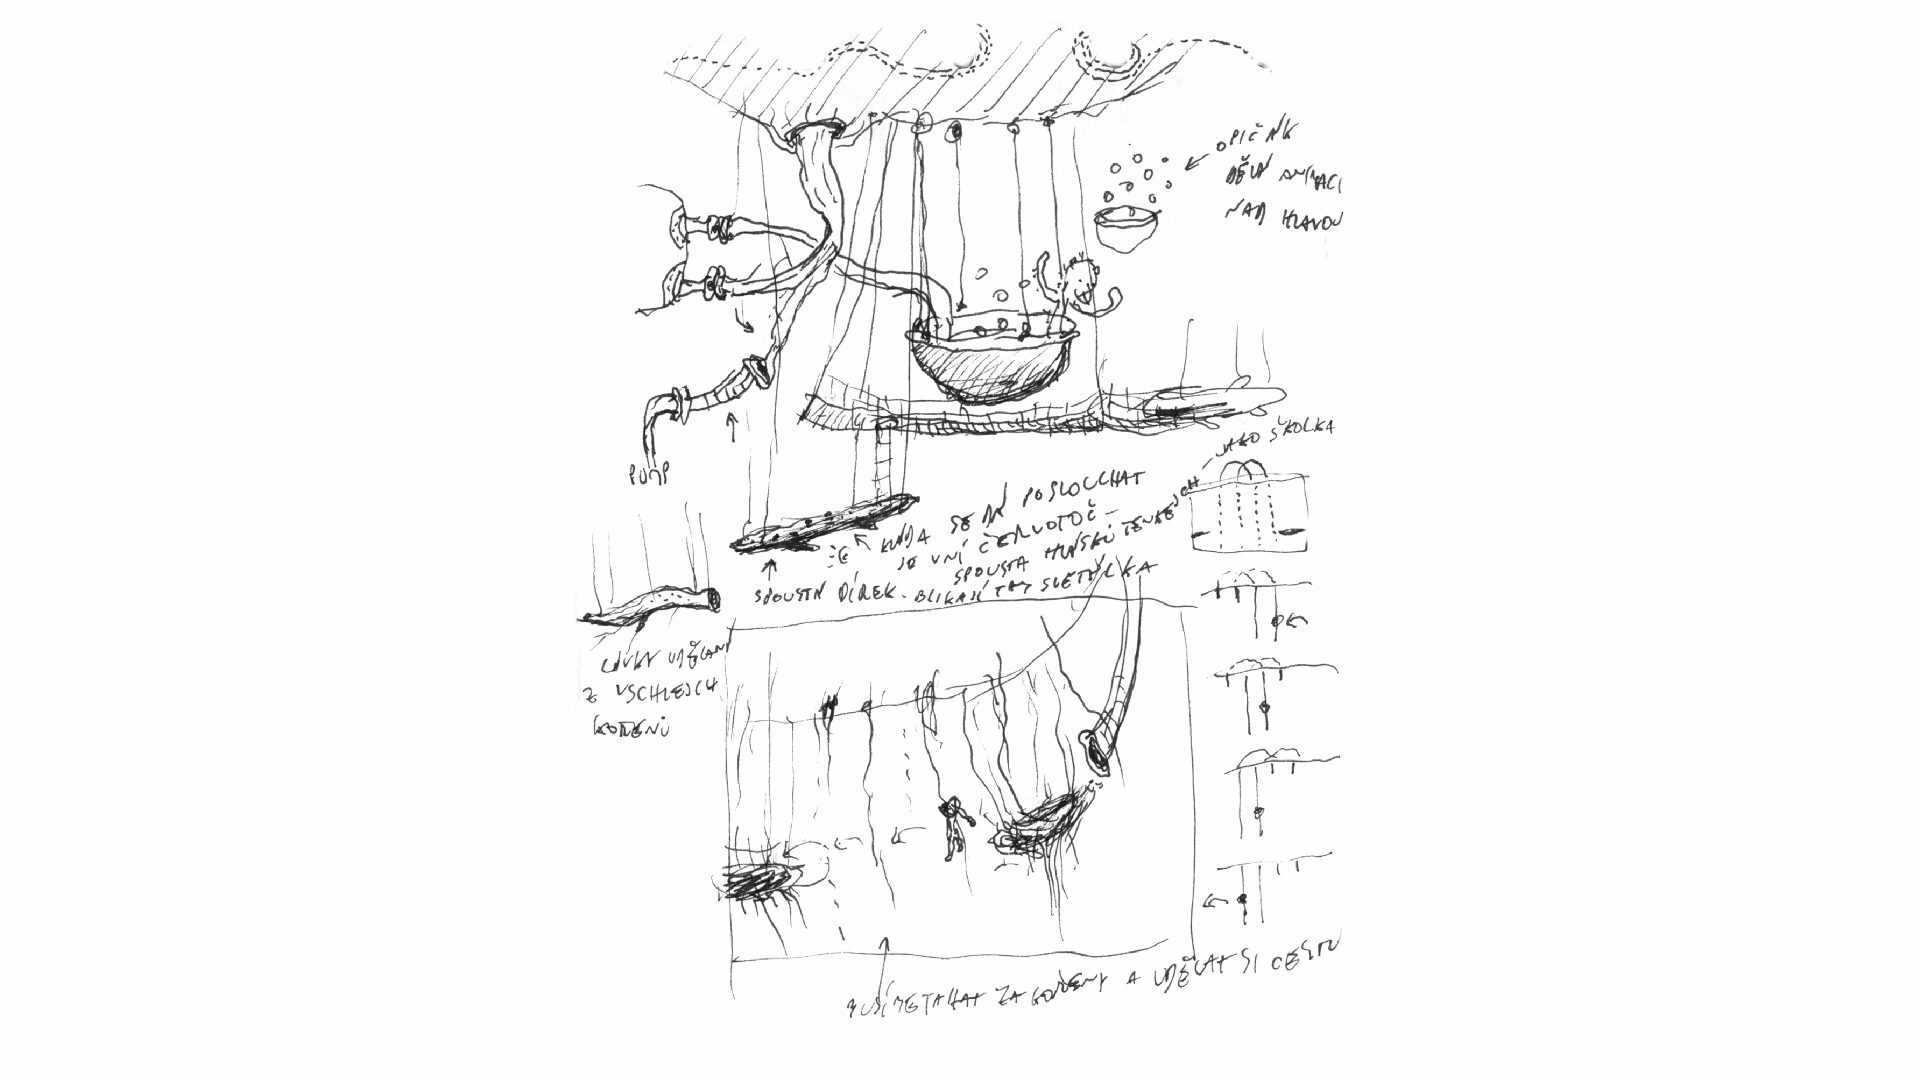 OPIČÁK
DĚLÁ ANIMACI
NAD HLAVOU
PUMP
JAKO ŠKOLKA
KLÁDA SE DÁ POSLOUCHAT
JE V NÍ ČERVOTOČ -
SPOUSTA HLÁSKŮ TENKEJCH
SPOUSTA DÍREK - BLIKAJÍ TAM SVĚTÝLKA
UDĚLANÝ
Z USCHLEJCH
KOŘENŮ
MUSÍME TAHAT ZA KOŘENY A UDĚLAT SI CESTU